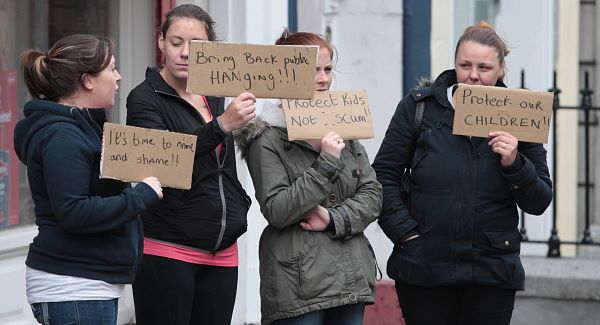 It's time to name
and shame!!
BRING BACK public
HANGING!!!
PROTECT KIDS
NOT SCUM!!
PROTECT OUR
CHILDREN!!